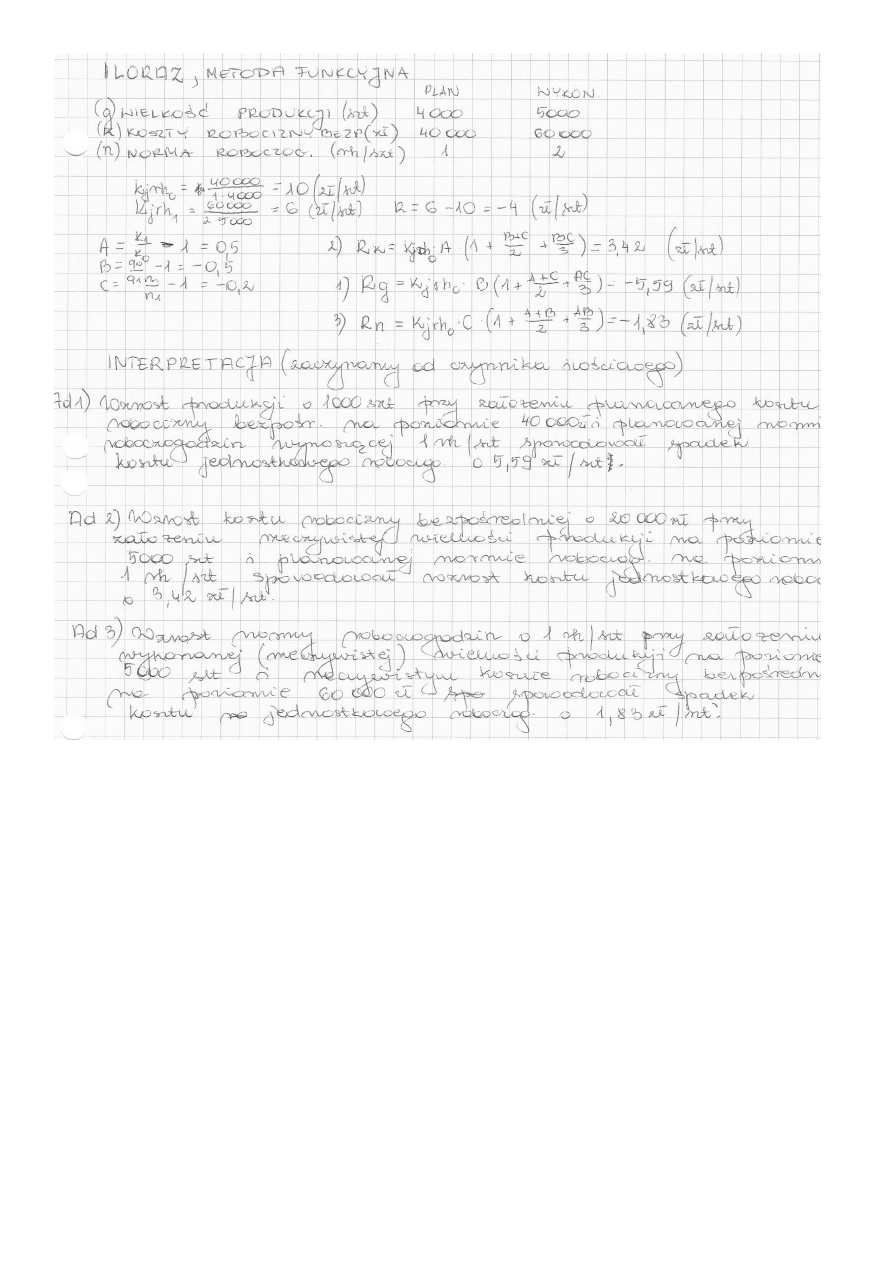 ILORAZ, METODA FUNKCYJNA
PLAN WYKON.
(q) WIELKOŚĆ PRODUKCJI (szt) 4000 5000
(k) KOSZTY ROBOCIZNY BEZP (zł) 40 000 60 000
(n) NORMA ROBOCZOG. (rh/szt) 1 2
kjrh₀ = 40 000 / 1·4000 = 10 (zł/szt)
Kjrh₁ = 60 000 / 2·5000 = 6 (zł/szt) R = 6 - 10 = -4 (zł/szt)
A = k₁/k₀ - 1 = 0,5 2) Rk = Kjrh₀ A · (1 + B+C/2 + BC/3) = 3,42 (zł/szt)
B = q₀/q₁ - 1 = -0,5
C = n₀/n₁ - 1 = -0,2 1) Rq = Kjrh₀ · B (1 + A+C/2 + AC/3) = -5,59 (zł/szt)
3) Rn = Kjrh₀ · C · (1 + A+B/2 + AB/3) = -1,83 (zł/szt)
INTERPRETACJA (zaczynamy od czynnika ilościowego)
Ad 1) Wzrost produkcji o 1000 szt przy założeniu planowanego kosztu
robocizny bezpośr. na poziomie 40 000 zł i planowanej normi
roboczogodzin wynoszącej 1 rh/szt spowodował spadek
kosztu jednostkowego robocizg. o 5,59 zł/szt.
Ad 2) Wzrost kosztu robocizny bezpośredniej o 20 000 zł przy
założeniu rzeczywistej wielkości produkcji na poziomie
5000 szt i planowanej normie roboczog. na poziom
1 rh/szt spowodował wzrost kosztu jednostkowego roboc
o 3,42 zł/szt.
Ad 3) Wzrost normy roboczogodzin o 1 rh/szt przy założeniu
wykonanej (rzeczywistej) wielkości produkcji na poziomie
5000 szt i rzeczywistym koszcie robocizny bezpośredn
na poziomie 60 000 zł spowodował spadek
kosztu jednostkowego roboczog. o 1,83 zł/szt.